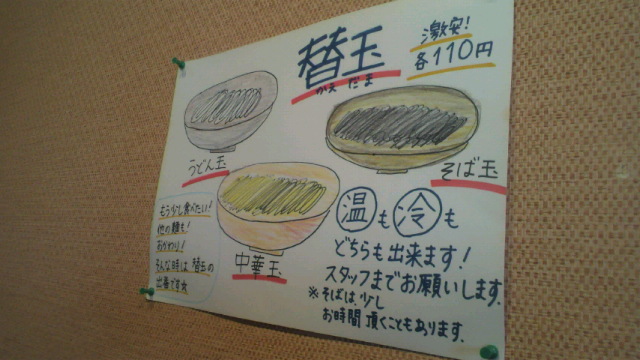 替玉
かえだま
激安!
各110円
うどん玉
そば玉
中華玉
もう少し食べたい!
他の麺も!
おかわり!
そんな時は替玉の
出番です☆
温も冷も
どちらも出来ます!
スタッフまでお願いします。
※そばは少し
お時間頂くこともあります。